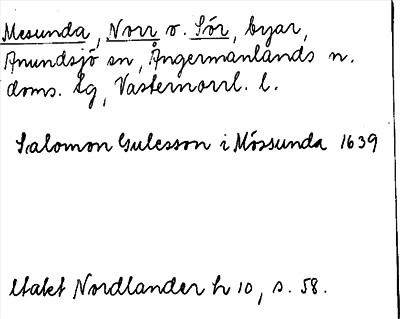 Mesunda, Norr o. Sör, byar,
Anundsjö sn, Ångermanlands n.
doms. lg, Västernorrl. l.
Salomon Gulesson i Mössunda 1639
Utakt Nordlander h 10, s. 58.